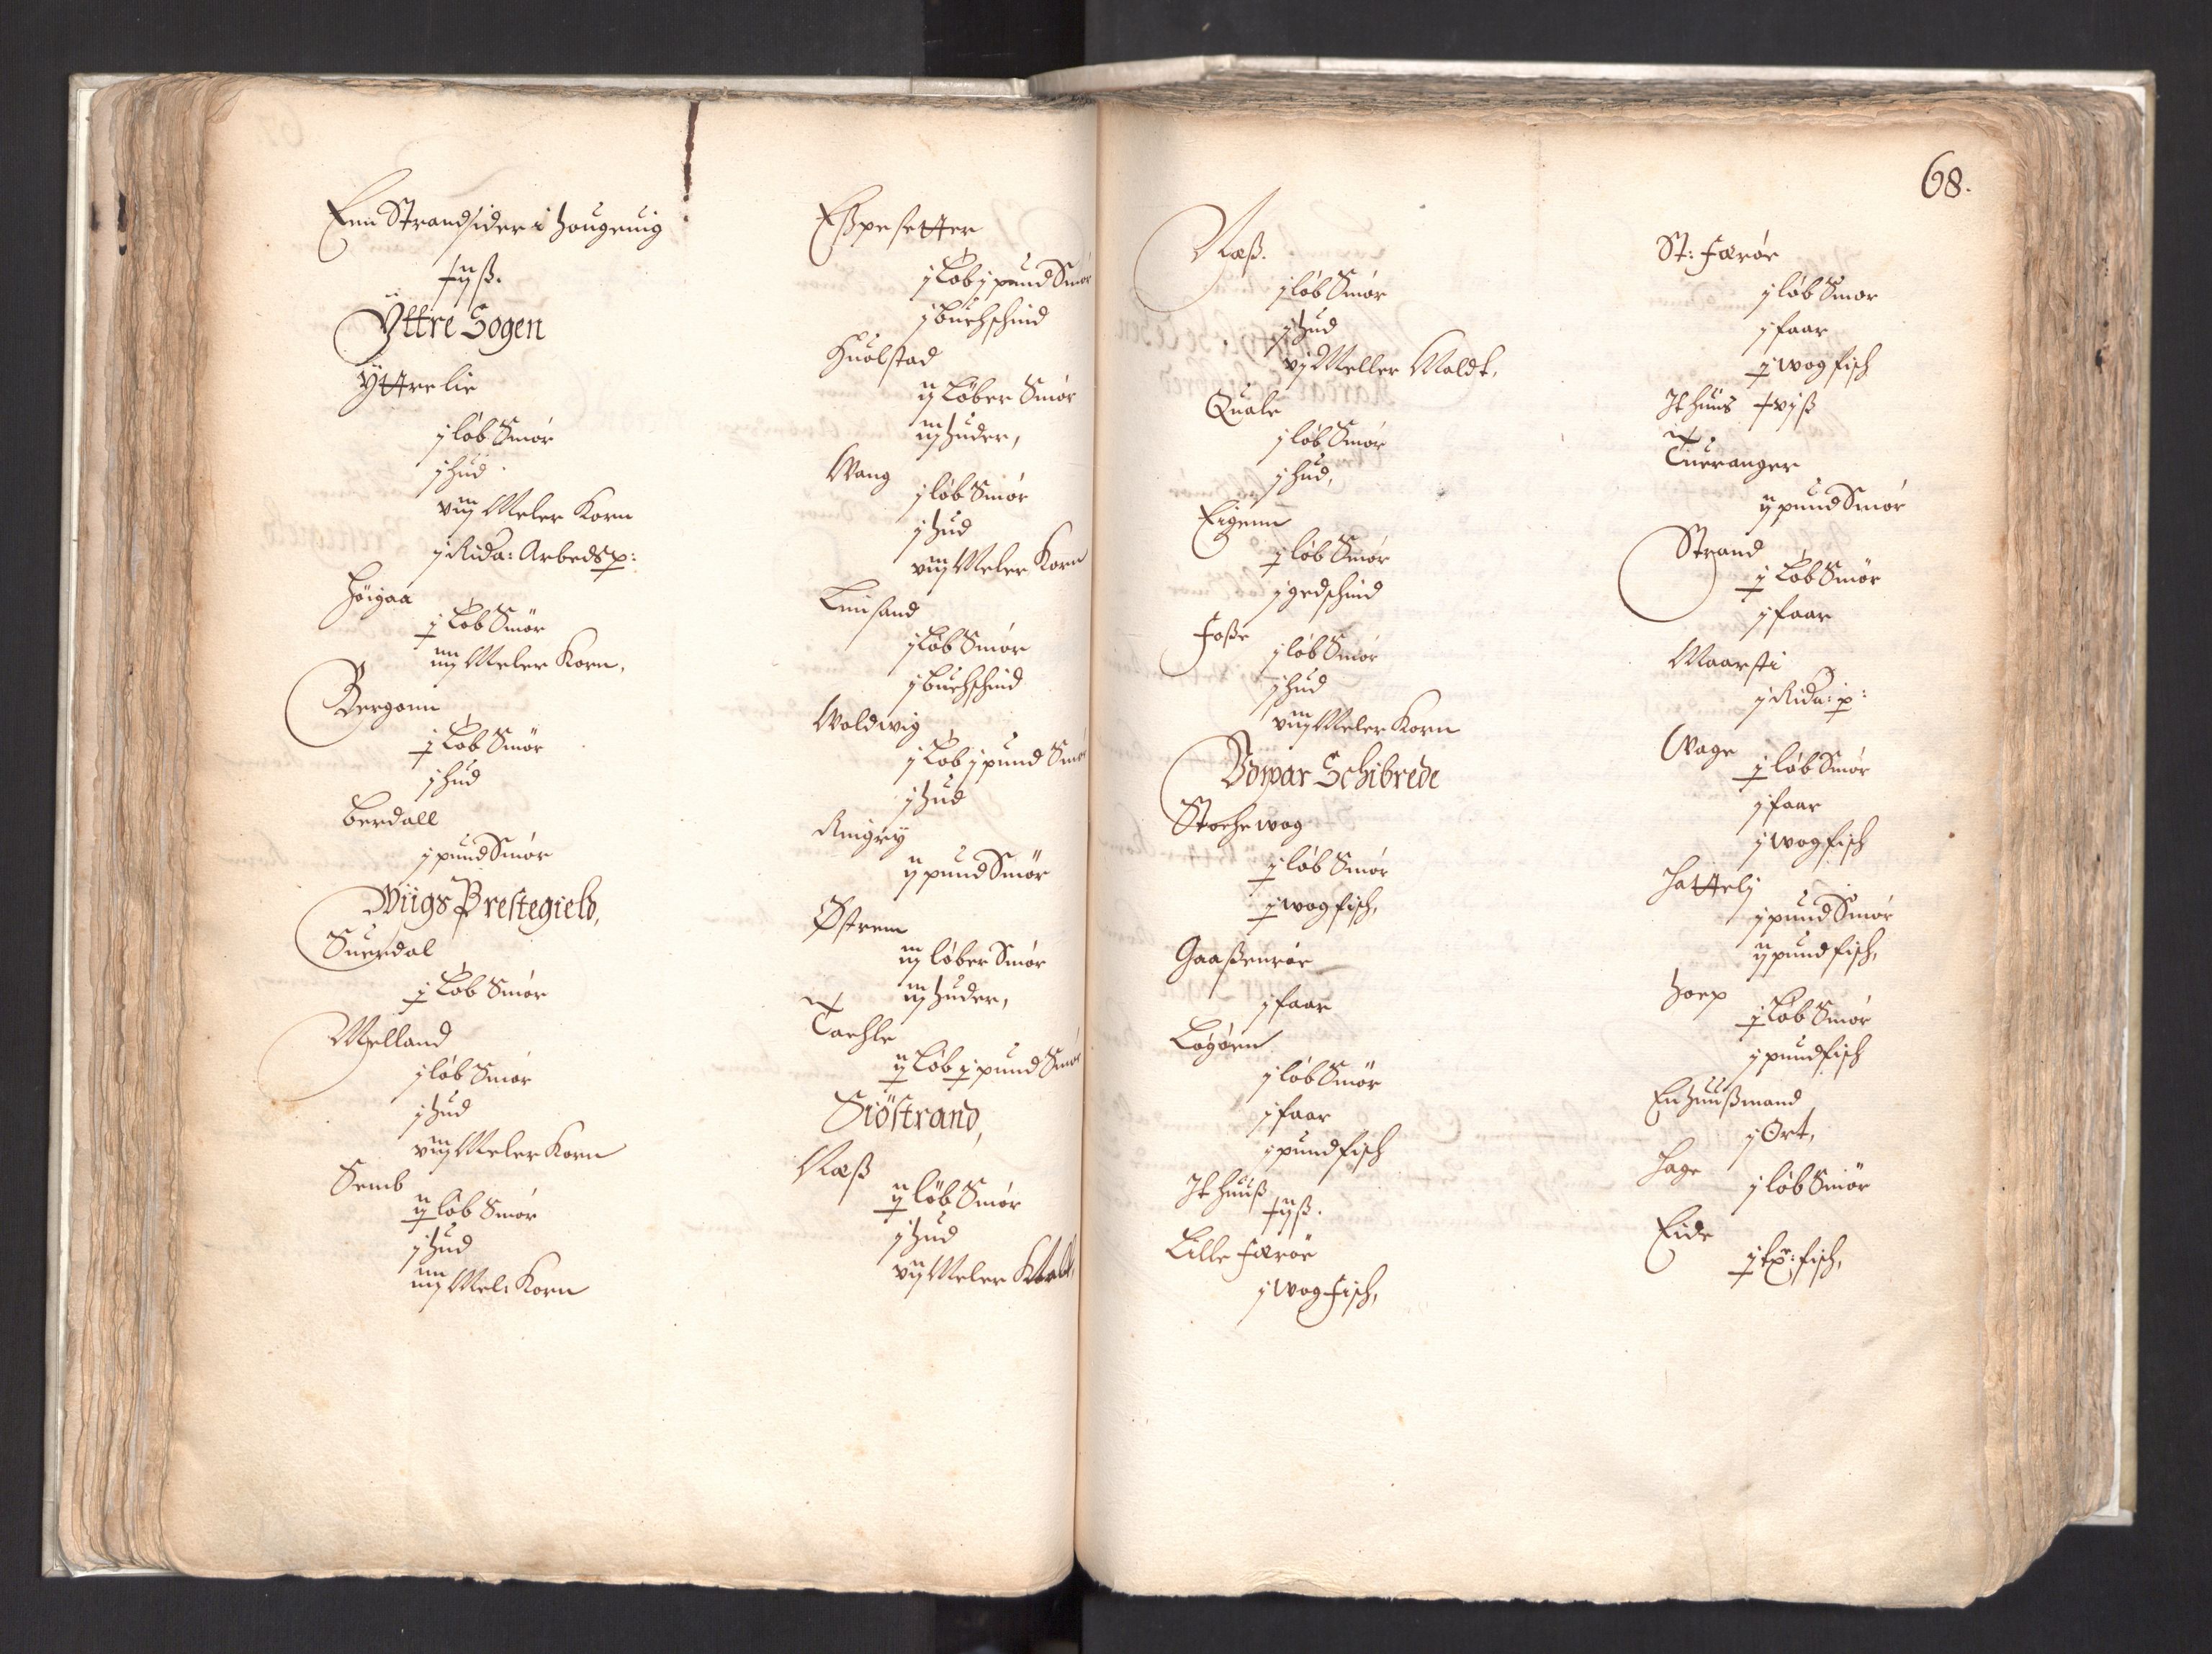 Enn Strandsider i Hougeuig
t ij ß.
Ÿttre Sogen
Ÿttrelie
j løb Smør
j hud
viij Meler Korn
j Rida: Arbedsp:
Høigaa
j Løb Smør
iiij Meler Korn,
Bergonn
j Løb Smør
j hud
Berdall
j pund Smør
Wiigs Prestegield,
Suerdal
j Løb Smør
Melland
j løb Smør
j hud
viij Meler Korn
Semb
ij løb Smør
j hud
iiij Mel: Korn
Eßpesetter
j Løb j pund Smør
j buchschind
Huolstad
ij Løber Smør
iij huder,
Wang
j løb Smør
j hud
viij Meler Korn
Linsand
j Løb Smør
j buchschind
Woldwig
j Løb j pund Smør
j hud
Ringeÿ
ij pund Smør
Østrem
iij løber Smør
iij huder,
Tachle
ij Løb j pund Smør
Siöstrand,
Næß
ij løb Smør
j hud
vij Meler Maldt,
68.
Næß.
j løb Smør
j hud
vj Meller Maldt,
Quale
j løb Smør
j hud,
Eigenn
j løb Smør
j gedschind
Foße
j løb Smør
j hud
viij Meler Korn
Opwar Schibrede
Stochewog
j løb Smør
j wog fisch,
Gaaßenrøe
j faar
Løgøen
j løb Smør
j faar
j pund fisch
It huuß
t ij ß.
Lille Færøe
j wog fisch,
St: Færøe
j løb Smør
j faar
j wog fisch
It huus t vj ß
Tueranger
ij pund Smør
Strand
j Løb Smør
j faar
Maarsti
j Rida: p:
Wage
j løb Smør
j faar
j wog fisch
Hattelj
j pund Smør
ij pund fisch,
Hoep
j Løb Smør
j pund fisch
En huußmand
j Ort,
Hage
j løb Smør
Eide
fisch,